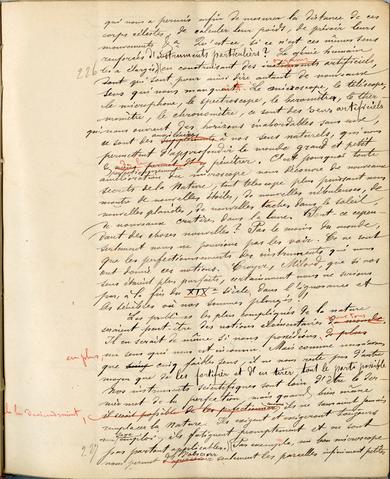 qui nous a permis enfin de mesurer la distance de ces
corps célestes, de calculer leur poids, de prévoir leurs
mouvements ? Qu'est-ce, si ce n'est ces mêmes sens
renforcés d'instruments particuliers ? Le génie humain
226 les a élargis en construisant des sens artificiels,
sont qui sont pour ainsi dire autant de nouveaux
sens qui nous manquent. Le microscope, le téléscope,
le microphone, le spectroscope, le baromètre, le ther
momètre, le chronomètre, ce sont des sens artificiels
qui nous ouvrent des horizons inabordables sans eux,
ce sont des à nos sens naturels, qui nous
permettent d'approfondir le monde grand et petit
pénétrer. C'est pourquoi toute
amélioration du microscope nous découvre de nouveaux
secrets de la Nature, tout télescope plus puissant nous
montre de nouvelles étoiles, de nouvelles nébuleuses, de
nouvelles planètes, de nouvelles taches dans le soleil,
de nouveaux cratères dans la lune. Est-ce cepen
dant des choses nouvelles ? Pas le moins du monde,
seulement nous ne pouvions pas les voir. Ce ne sont
que les perfectionnements des instruments qui nous
ont donné ces notions. Croyez, Mélord que si nos
sens étaient plus parfaits, certainement nous ne serions
pas, à la fin du XIX siècle, dans l'ignorance et
les ténèbres où nous sommes plongés.
Les problèmes les plus compliqués de la nature
seraient peut-être des notions élémentaires
Il en serait de même si nous possédions
en plus, un sens qui nous est inconnu. Mais comme nous n'avons
que cinq faibles sens, il ne nous reste pas d'autre
moyen que de les fortifier et d'en tirer tout le parti possible
Nos instruments scientifiques sont loin d'être le der
nier mot de la perfection, mais quand, bien même
ils ne sauraient jamais
remplacer la Nature. Ils exigent et exigeront toujours
un emploi, ils fatiguent promptement et ne sont
227 pas partout applicables. Par exemple, un bon microscope
nous permet seulement les parcelles infiniment petites